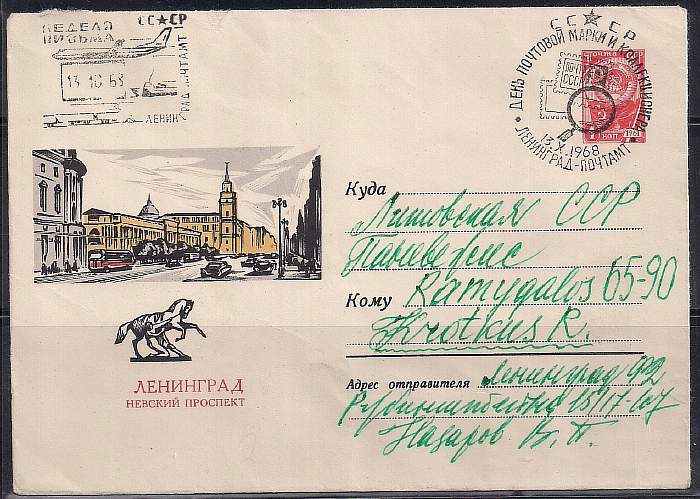 СССР
НЕДЕЛЯ
ПИСЬМА
13 10 68
ЛЕНИНГРАД ПОЧТАМТ
СССР
ДЕНЬ ПОЧТОВОЙ МАРКИ И КОЛЛЕКЦИОНЕРА
ПОЧТА
СССР
13.X.1968
ЛЕНИНГРАД-ПОЧТАМТ
1961
Куда
Литовская ССР
Паневежис
Кому Ramygalos 65-90
Krotkus R.
Адрес отправителя Ленинград
15/17-107
Назаров В. П.
ЛЕНИНГРАД
НЕВСКИЙ ПРОСПЕКТ